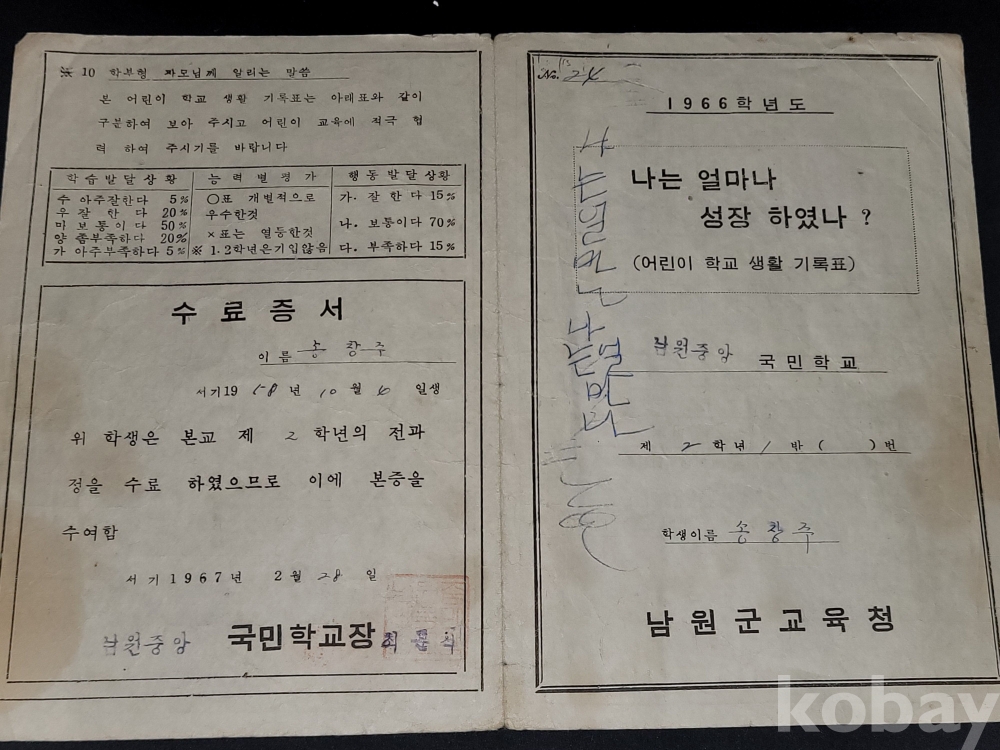 ※ 10 학부형 자모님께 알리는 말씀
본 어린이 학교 생활 기록표는 아래표와 같이
구분하여 보아 주시고 어린이 교육에 적극 협
력 하여 주시기를 바랍니다
학습발달상황 능력별평가 행동발달상황
수 아주잘한다 5% ○표 개별적으로 가. 잘한다 15%
우 잘 한 다 20% 우수한것
미 보통이다 50% ×표는 열등한것 나. 보통이다 70%
양 좀부족하다 20%
가 아주부족하다 5% ※ 1.2학년은기입않음 다. 부족하다 15%
수료증서
이름 송창주
서기19 58년 10월 6 일생
위 학생은 본교 제 2 학년의 전과
정을 수료 하였으므로 이에 본증을
수여함
서기 1967년 2월 28일
남원중앙 국민학교장
No. 24
1966학년도
나는 얼마나
성장 하였나 ?
(어린이 학교 생활 기록표)
남원중앙 국민학교
제 2학년 1 반 ( ) 번
학생이름 송창주
남원군교육청
kobay